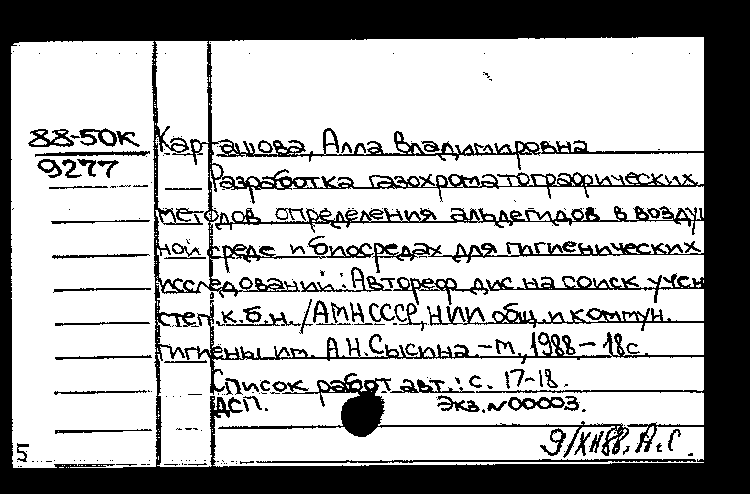 88-50к
9277
Карташова, Алла Владимировна
Разработка газохроматографических
методов определения альдегидов в возду
ной среде и биосредах для гигиенических
исследований: Автореф дис. на соиск учен
степ. к.б.н. /АМН СССР, НИИ общ. и коммун.
гигиены им. А.Н.Сысина. -М, 1988 - 18с.
Список работ авт.: с. 17-18.
ДСП. Экз. N00003.
9/XII88, А.С.
5